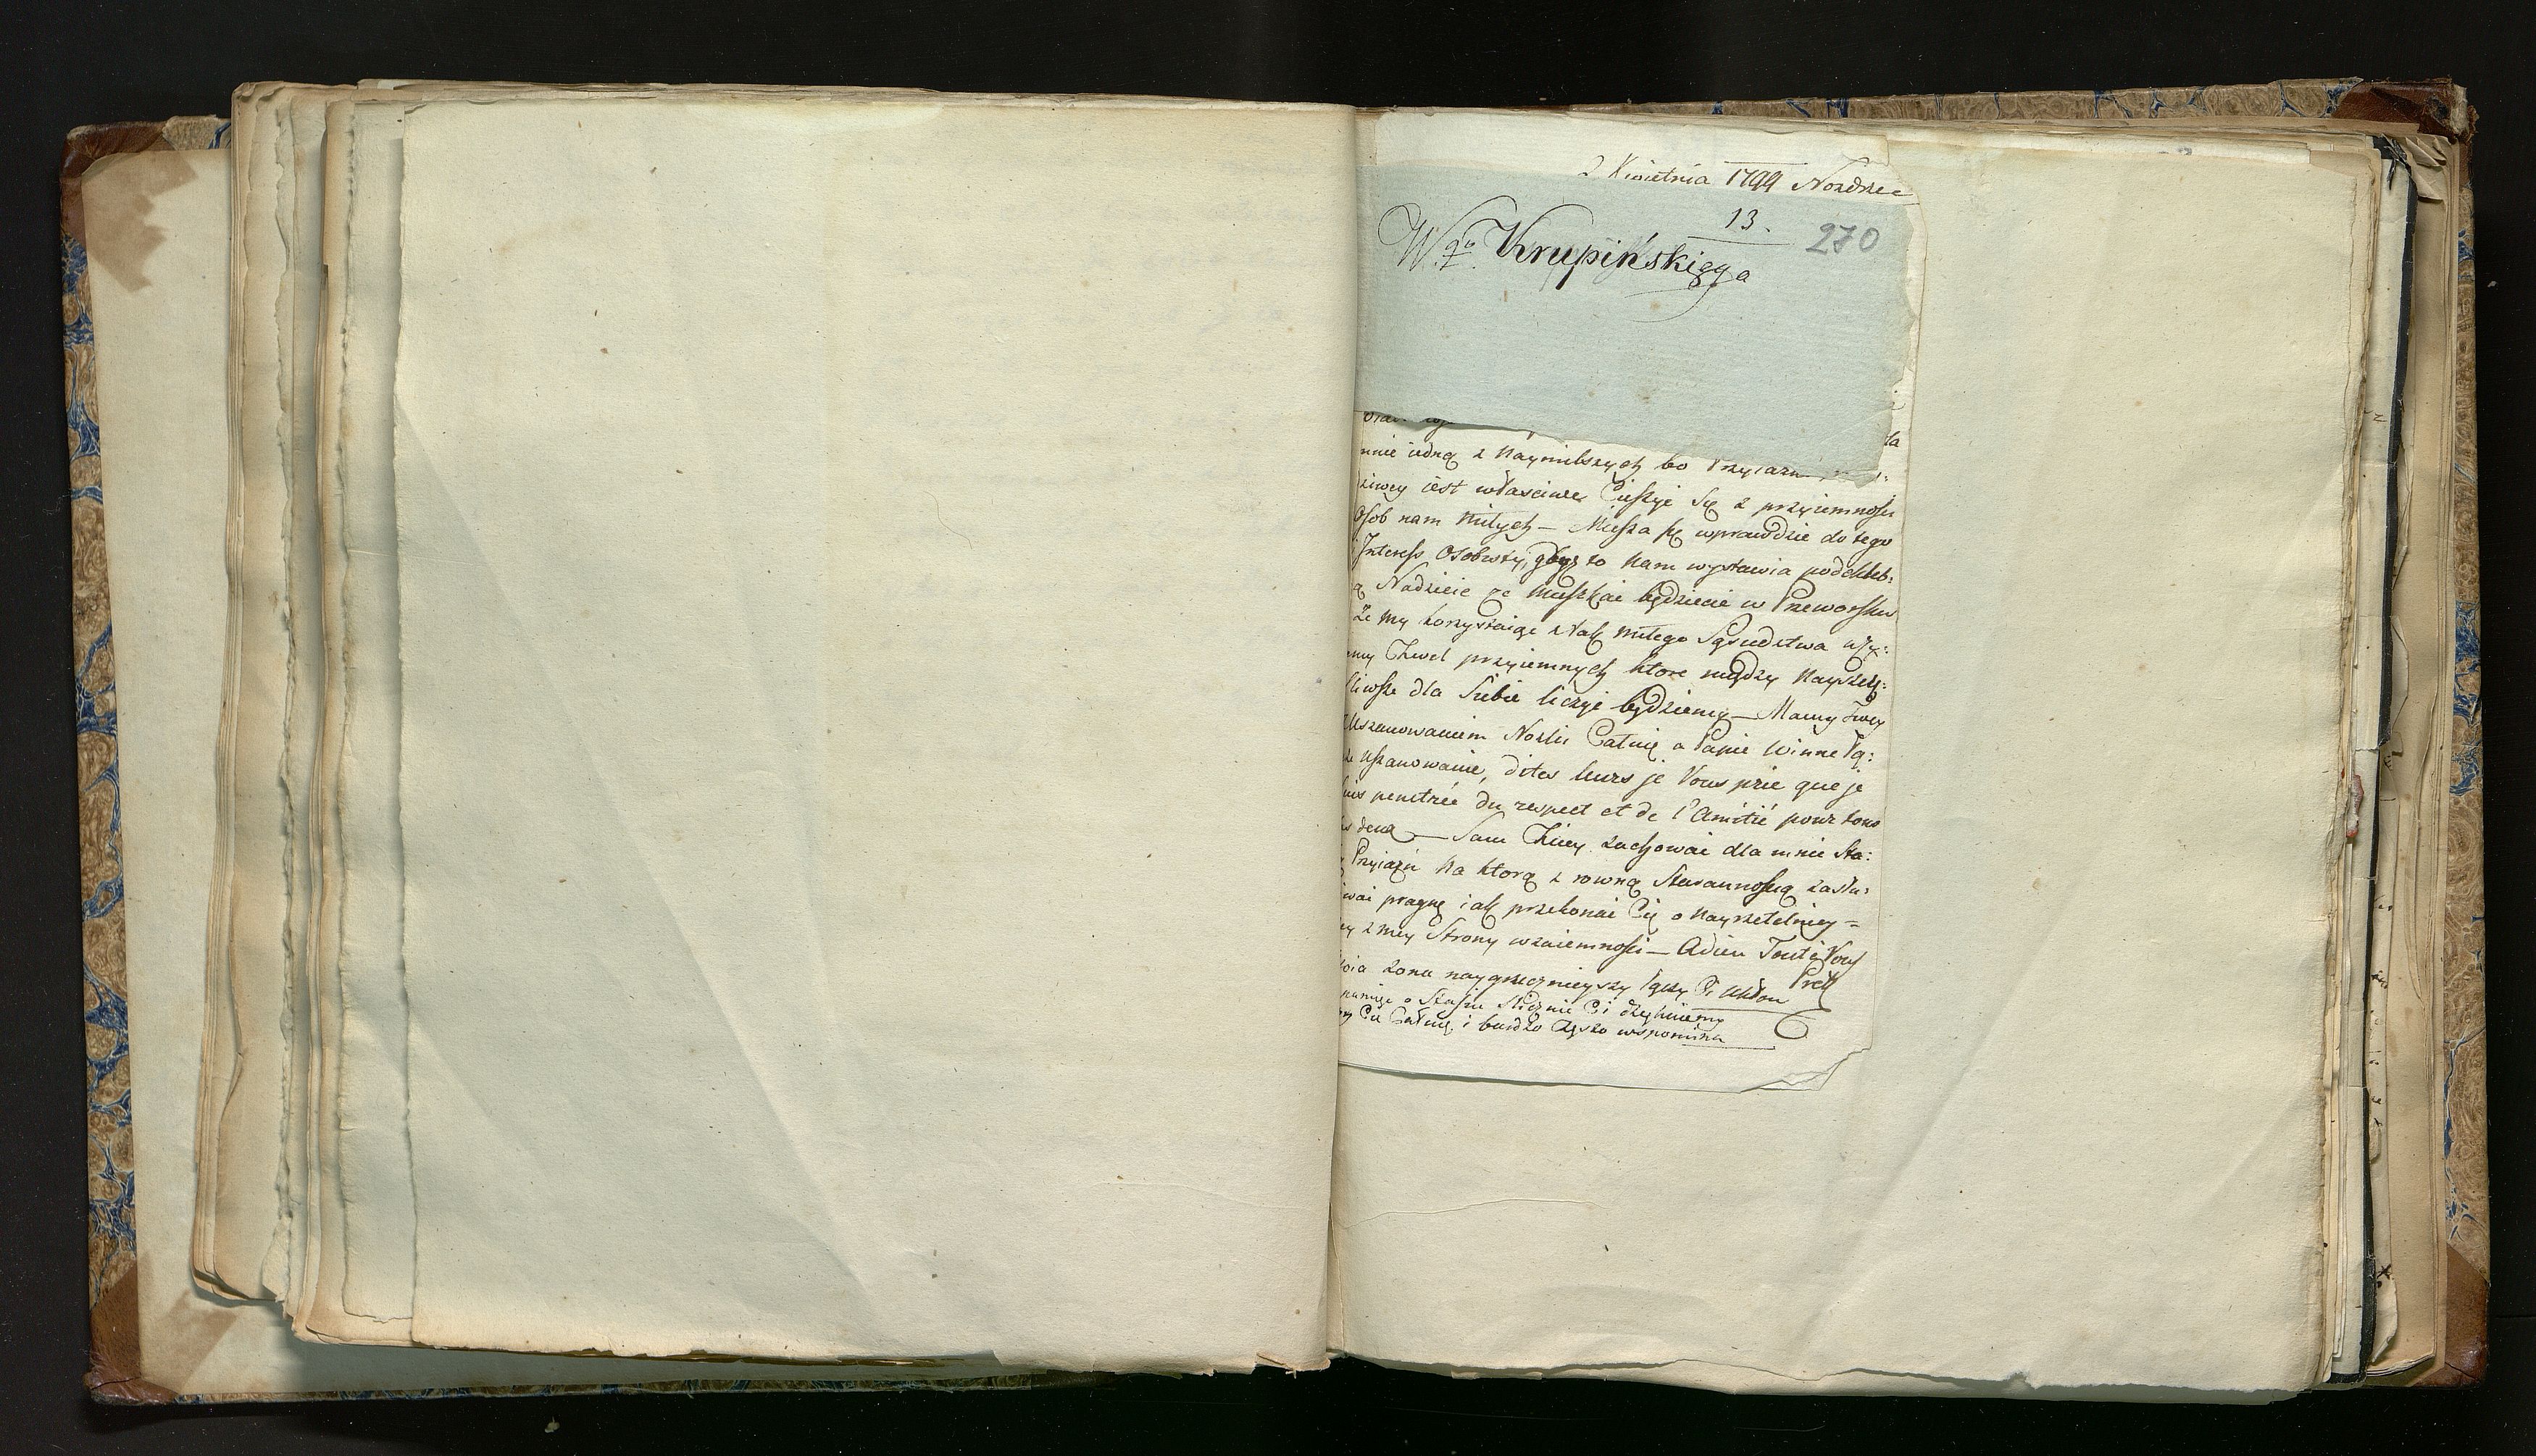 2 Kwietnia 1799 Nozdrzec
13.
270
W.go Krupińskiego
la
mnie iedną z Naymilszych bo Przyiazn
dziwey iest własciwe Cieszyć Się z przyiemnosci
Osob nam Miłych — Miesza się wprawdzie do tego
Interess Osobisty, gdyż to Nam wystawia podchleb:
ą Nadzieie że Mieszkać będziecie w Przeworsku
Że my korzystaiąc z tak Miłego Sąsiedztwa uży:
emy Chwil przyiemnych ktore między Nayszczę:
śliwsze dla Siebie liczyć będziemy — Mamy Twey
z Uszanowaniem Nozki Całuię a Papie Winne łą:
że uszanowanie, dites leurs je Vous prie que je
uis penetrée du respect et de l'Amitié pour tous
es deux — Sam Chciey zachować dla mnie Sta:
Przyiazń Na ktorą z rowną Starannoscią zasłu:
iwać pragnę iak przekonać Cię o Nayrzetelniey=
ey z mey Strony wzaiemnosci — Adieu Tout à Vous
Prek
oia zona naygrzeczniejszy łączy Ci Ukłon
o Stasiu Slicznie Ci dziękuiemy
Cie Całuię i bardzo często wspomina